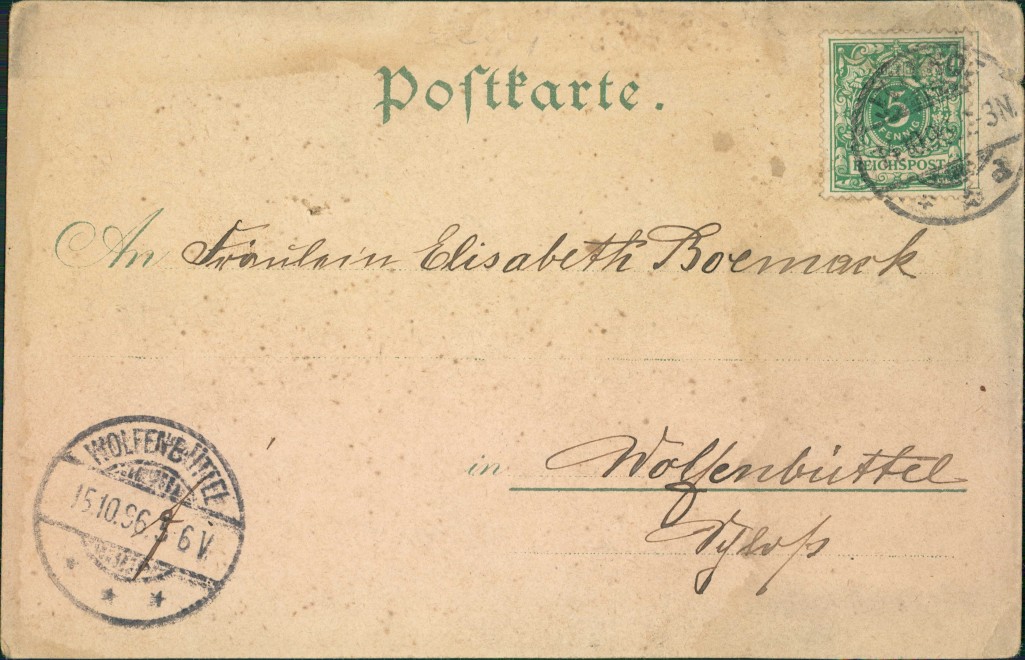 Postkarte.
5
PFENNIG
REICHSPOST
-3N.
a
An Fräulein Elisabeth Boemack
in Wolfenbüttel
Schloß
WOLFENBÜTTEL
15.10.96. 5-6V.